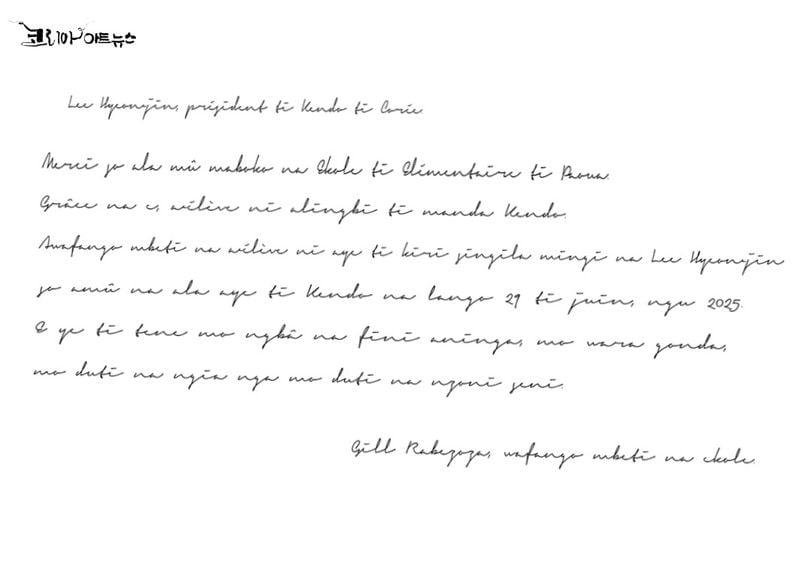 코리아아트뉴스
Lee Hyeonjin, président ti Kendo ti Corée
Merci so ala mû maboko na Ekole ti Elimentaire ti Paoua.
Grâce na e, wilive ni alingbi ti manda Kendo.
Awafango mbeti na wilive ni aye ti kiri singila mingi na Lee Hyeonjin
so amû na ala aye ti Kendo na lango 29 ti juin, ngu 2025.
E ye ti tene mo ngbâ na fini aninga, mo wara gonda,
mo duti na ngia nga mo duti na nzoni seni.
Gill wafango mbeti na ekole.